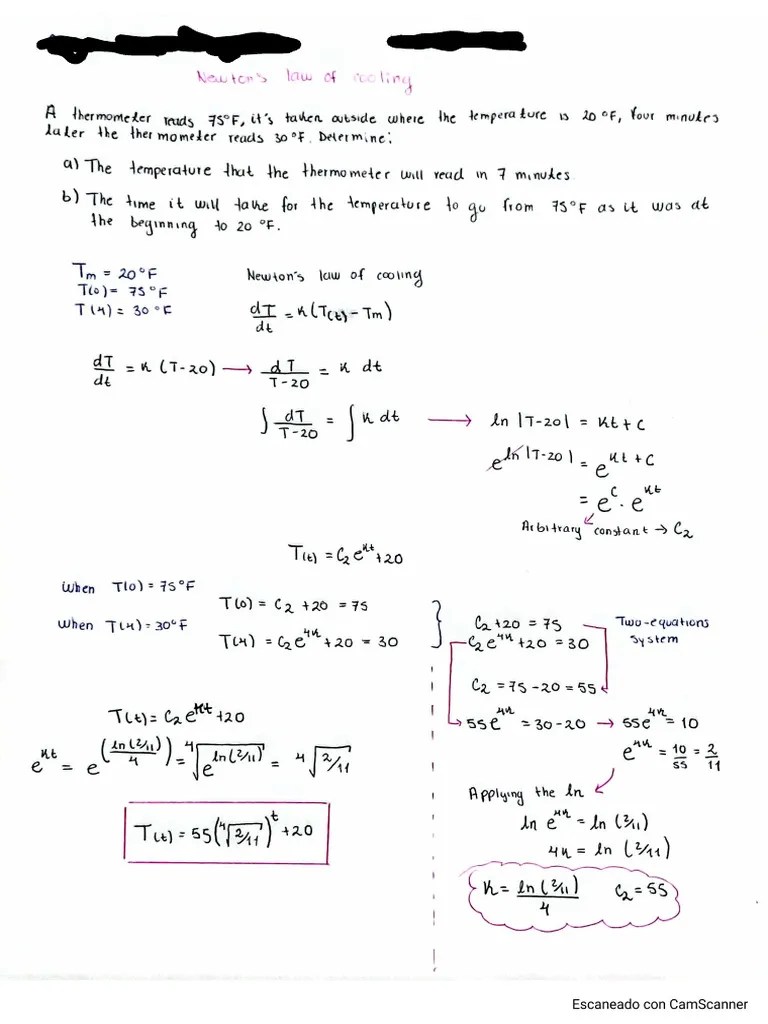 Newton's law of cooling
A thermometer reads 75°F, it's taken outside where the temperature is 20 °F, four minutes
later the thermometer reads 30°F. Determine:
a) The temperature that the thermometer will read in 7 minutes
b) The time it will take for the temperature to go from 75°F as it was at
the beginning to 20 °F.
Tm = 20°F
T(0) = 75°F
T(4) = 30°F
Newton's law of cooling
dT/dt = k(T(t) - Tm)
dT/dt = k (T-20) → dT/(T-20) = k dt
∫ dT/(T-20) = ∫ k dt → ln |T-20| = kt + C
e^(ln |T-20|) = e^(kt + C)
= e^C · e^(kt)
Arbitrary constant → C₂
T(t) = C₂ e^(kt) + 20
When T(0) = 75°F
T(0) = C₂ + 20 = 75
When T(4) = 30°F
T(4) = C₂e^(4k) + 20 = 30
C₂ + 20 = 75
C₂e^(4k) + 20 = 30
Two-equations
system
C₂ = 75 - 20 = 55
55e^(4k) = 30 - 20 → 55e^(4k) = 10
e^(4k) = 10/55 = 2/11
Applying the ln
ln e^(4k) = ln (2/11)
4k = ln (2/11)
k = ln (2/11)/4 C₂ = 55
T(t) = C₂e^(kt) + 20
e^(kt) = e^(ln(2/11)/4) = ⁴√(e^(ln(2/11))) = ⁴√(2/11)
T(t) = 55(⁴√(2/11))^t + 20
Escaneado con CamScanner